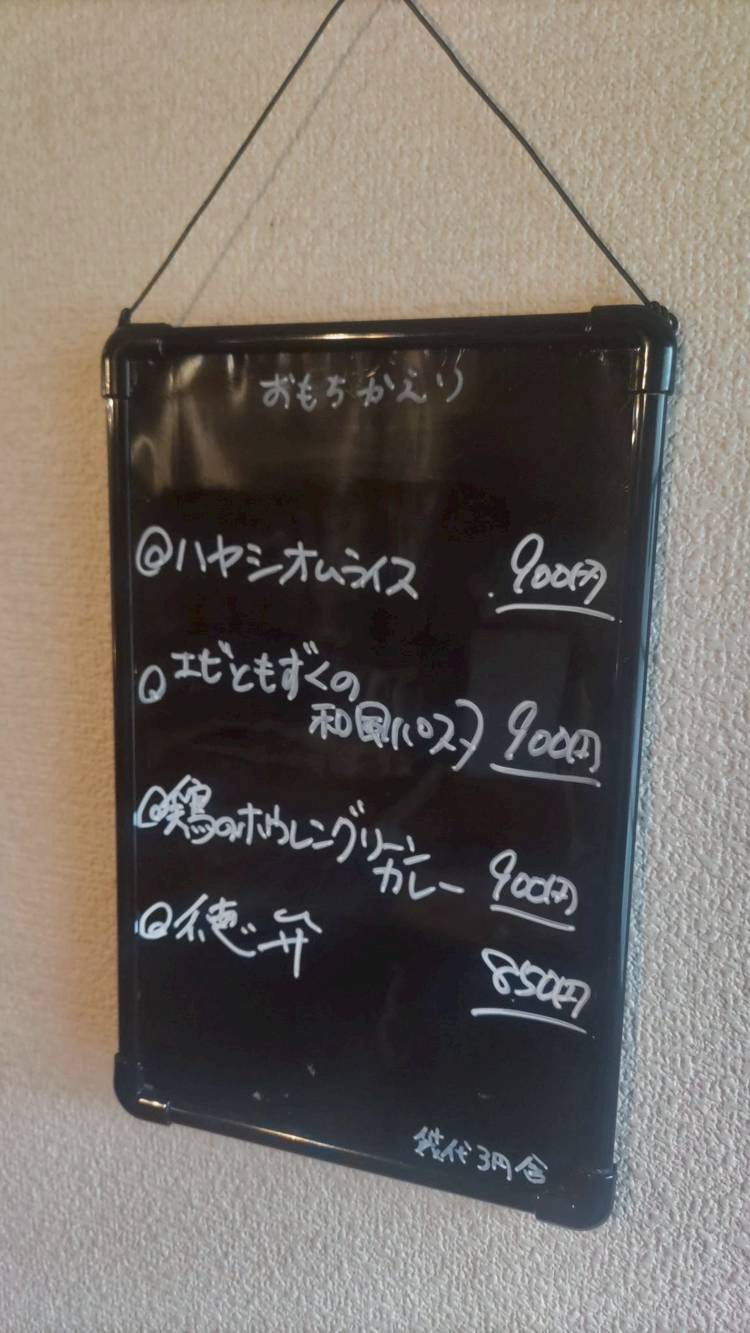 おもちかえり
@ハヤシオムライス 900円
@エビともずくの
和風パスタ 900円
@鶏のホウレングリーン
カレー 900円
@徳弁 850円
袋代3円含